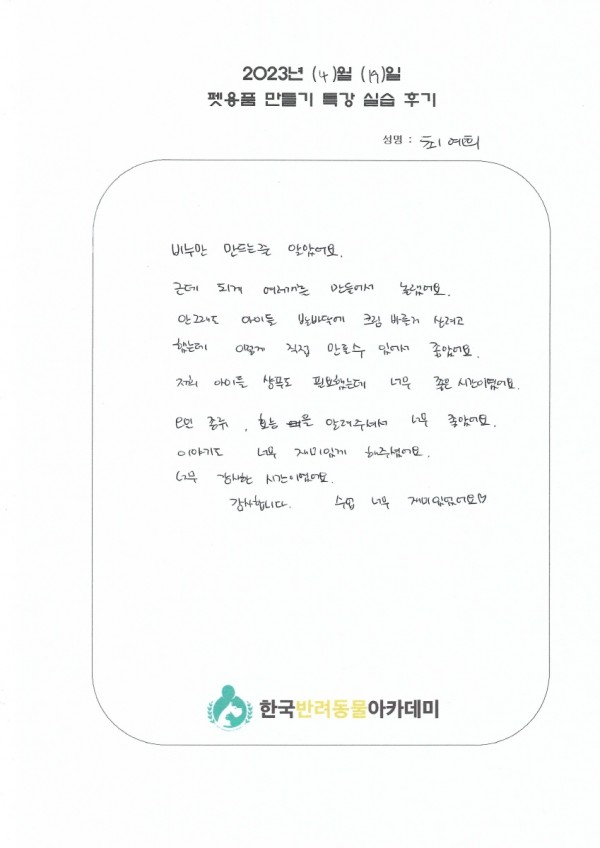 2023년 (4)월 (19)일
펫용품 만들기 특강 실습 후기
성명 : 최예희
비누만 만드는줄 알았어요.
근데 되게 여러개를 만들어서 놀랬어요.
안그래도 아이들 발바닥에 크림 바를거 살려고
했는데 이렇게 직접 만들수 있어서 좋았어요.
저희 아이들 샴푸도 필요했는데 너무 좋은 시간이였어요.
오일 종류, 효능 을 알려주셔서 너무 좋았어요.
이야기도 너무 재미있게 해주셨어요.
너무 감사한 시간이였어요.
감사합니다. 수업 너무 재미있었어요♡
한국반려동물아카데미